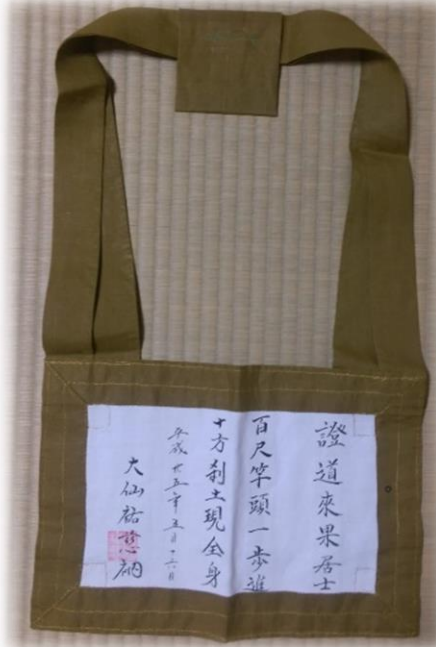 證道來果居士
百尺竿頭一步進
十方刹土現全身
平成廿五年五月十六日
大仙祐慈衲